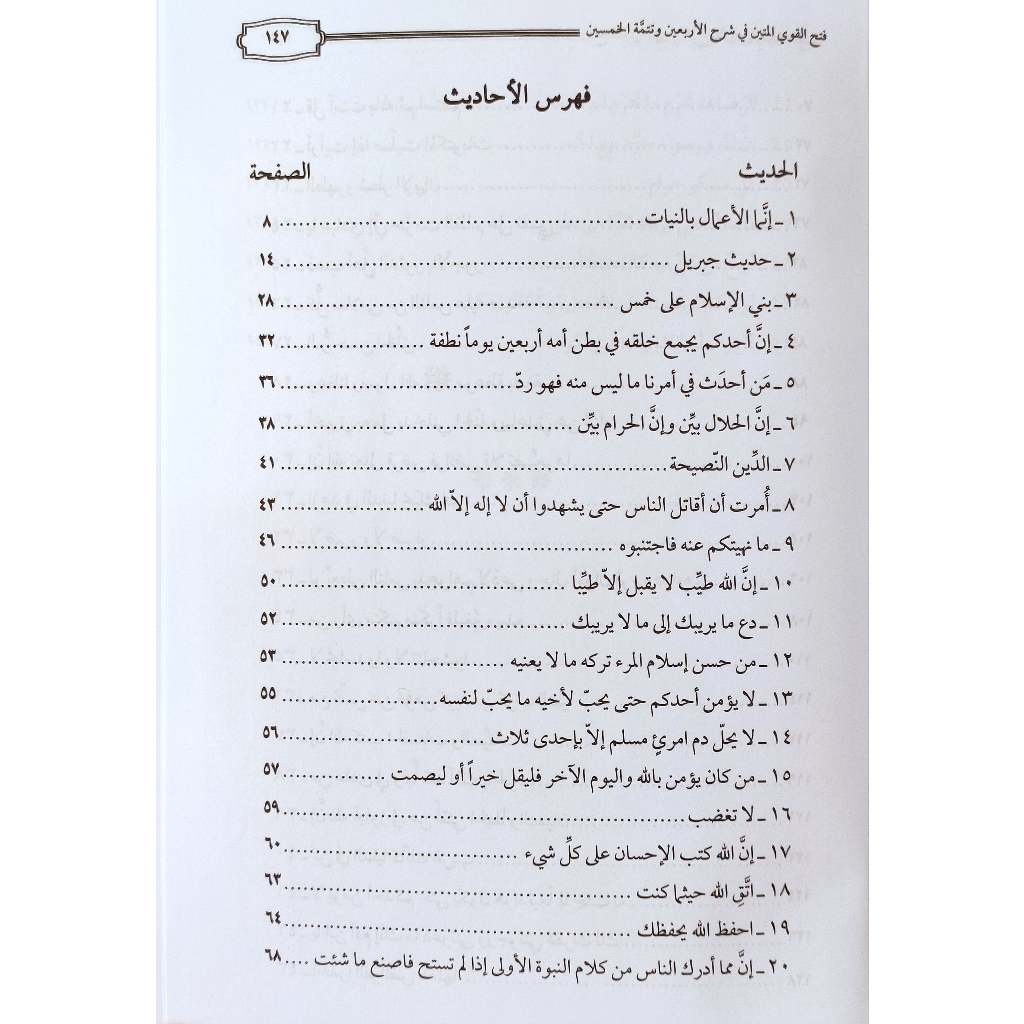 فتح القوي المتين في شرح الأربعين وتتمَّة الخمسين ١٤٧
فهرس الأحاديث
الحديث الصفحة
١ ـ إنَّما الأعمال بالنيات ........................................ ٨
٢ ـ حديث جبريل ........................................ ١٤
٣ ـ بني الإسلام على خمس ........................................ ٢٨
٤ ـ إنَّ أحدكم يجمع خلقه في بطن أمه أربعين يوماً نطفة .................... ٣٢
٥ ـ مَن أحدَث في أمرنا ما ليس منه فهو ردّ .............................. ٣٦
٦ ـ إنَّ الحلال بيِّن وإنَّ الحرام بيِّن .............................. ٣٨
٧ ـ الدِّين النّصيحة ........................................ ٤١
٨ ـ أُمرت أن أقاتل الناس حتى يشهدوا أن لا إله إلاّ الله .................... ٤٣
٩ ـ ما نهيتكم عنه فاجتنبوه ........................................ ٤٦
١٠ ـ إنَّ الله طيِّب لا يقبل إلاّ طيِّبا .............................. ٥٠
١١ ـ دع ما يريبك إلى ما لا يريبك .............................. ٥٢
١٢ ـ من حسن إسلام المرء تركه ما لا يعنيه .............................. ٥٣
١٣ ـ لا يؤمن أحدكم حتى يحبّ لأخيه ما يحبّ لنفسه .................... ٥٥
١٤ ـ لا يحلّ دم امرئٍ مسلم إلاّ بإحدى ثلاث .............................. ٥٦
١٥ ـ من كان يؤمن بالله واليوم الآخر فليقل خيراً أو ليصمت ............... ٥٧
١٦ ـ لا تغضب ........................................ ٥٩
١٧ ـ إنَّ الله كتب الإحسان على كلِّ شيء .............................. ٦٠
١٨ ـ اتَّقِ الله حيثما كنت ........................................ ٦٣
١٩ ـ احفظ الله يحفظك ........................................ ٦٤
٢٠ ـ إنَّ مما أدرك الناس من كلام النبوة الأولى إذا لم تستح فاصنع ما شئت .... ٦٨